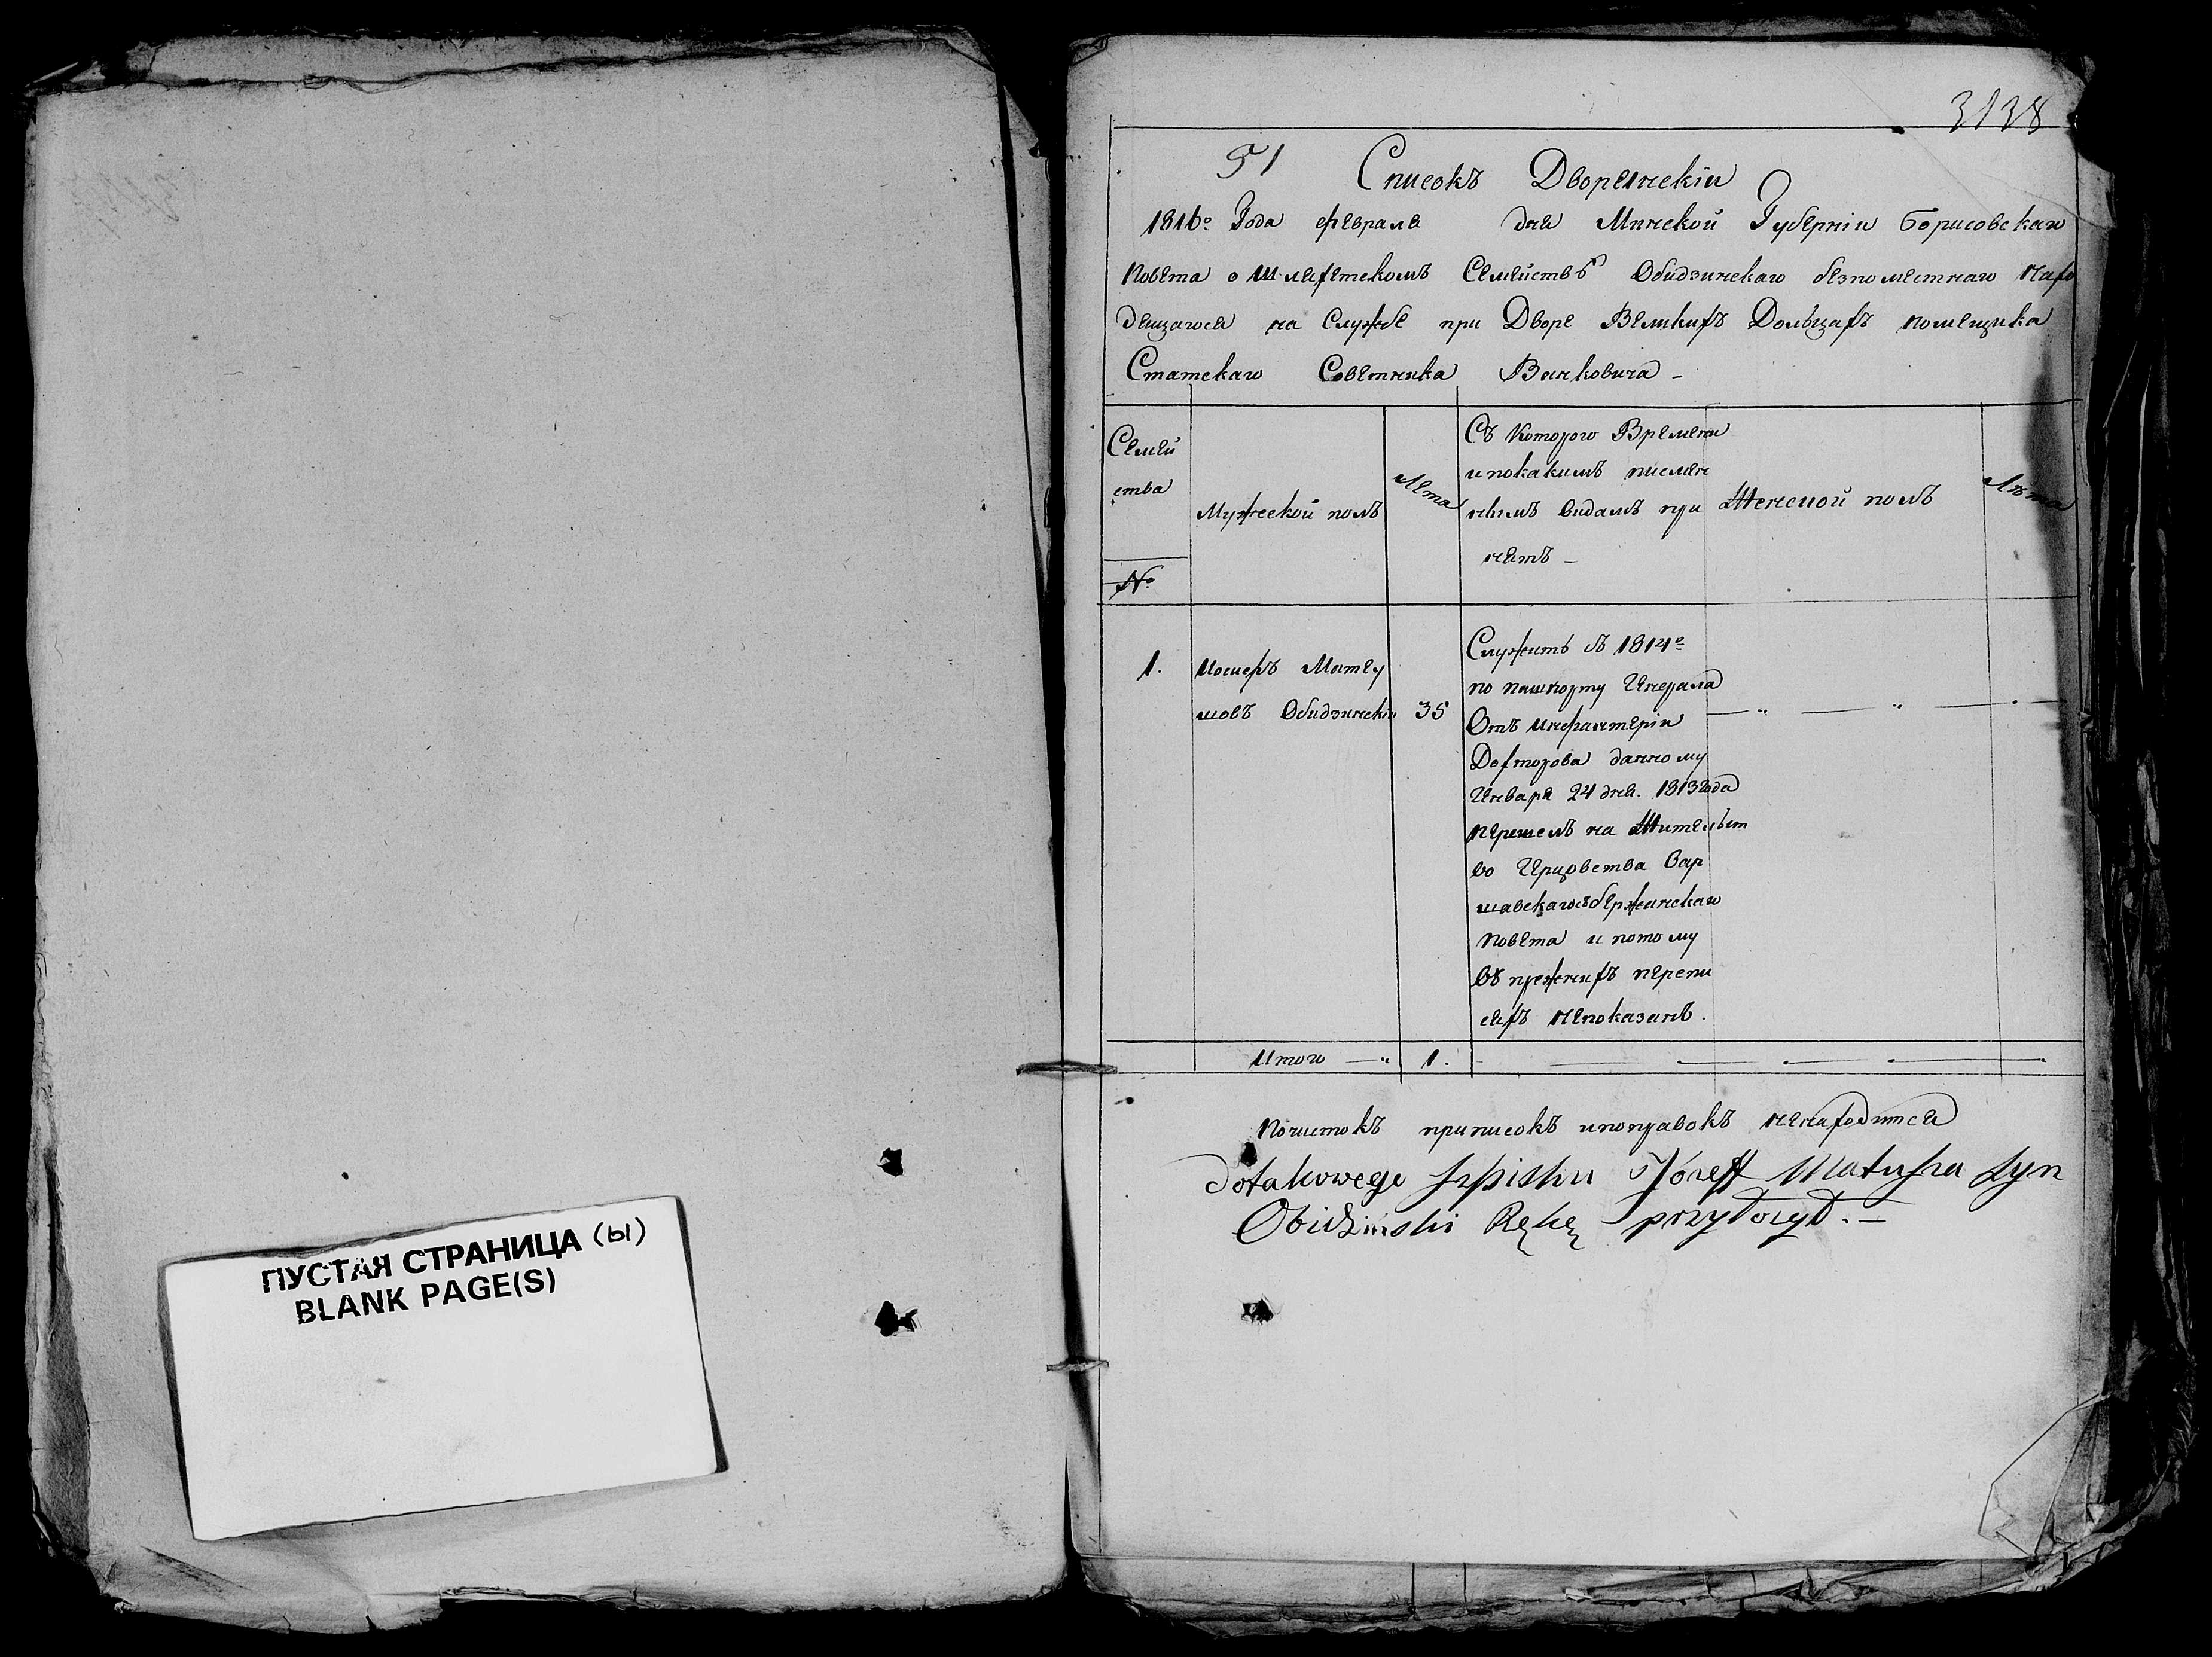 ПУСТАЯ СТРАНИЦА (Ы)
BLANK PAGE(S)
3138
51 Списокъ Дворянскій
1816º Года февраля дня Минской Губерніи Борисовскаго
Повета о Шляхетскомъ Семействѣ Обидзинскаго безпоместнаго нахо
дящагося на Службе при Дворе Великихъ Дольцахъ помещика
Статскаго Советника Ваньковича -
Семей
ства
№
Мужеской полъ
Лета
Съ Которого Времени
и покакимъ писмен
нымъ видамъ при
нятъ -
Женской полъ
Лѣта
1.
Иосифъ Матеу
шовъ Обидзинскій
35
Служитъ съ 1814º
по пашпорту Генерала
Отъ Инфантеріи
Дохторова данному
Генваря 24 дня. 1813 года
перешелъ на Жительст
во Герцовства Вар
шавскаго
повета и потому
въ прежнихъ перепи
сяхъ непоказанъ.
Итого 1.
Почистокъ приписокъ ипоправокъ ненаходится
Dotakowego Szpisku Józeff Matusza Syn
Obidziński Rękę przyłożył. -